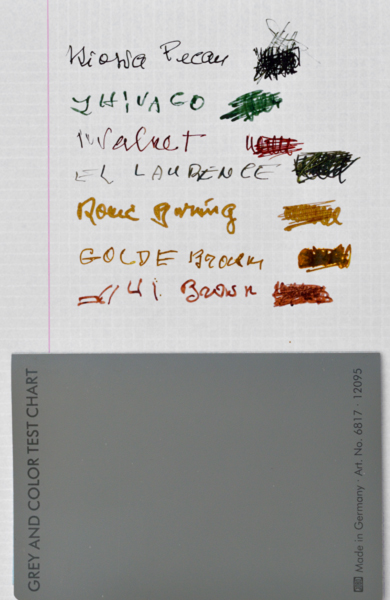 Kiowa Pecan
ZHIVAGO
Walnut
EL LAWRENCE
Rome Burning
GOLDE Brown
Brown
GREY AND COLOR TEST CHART
Made in Germany · Art. No. 6817 · 12095